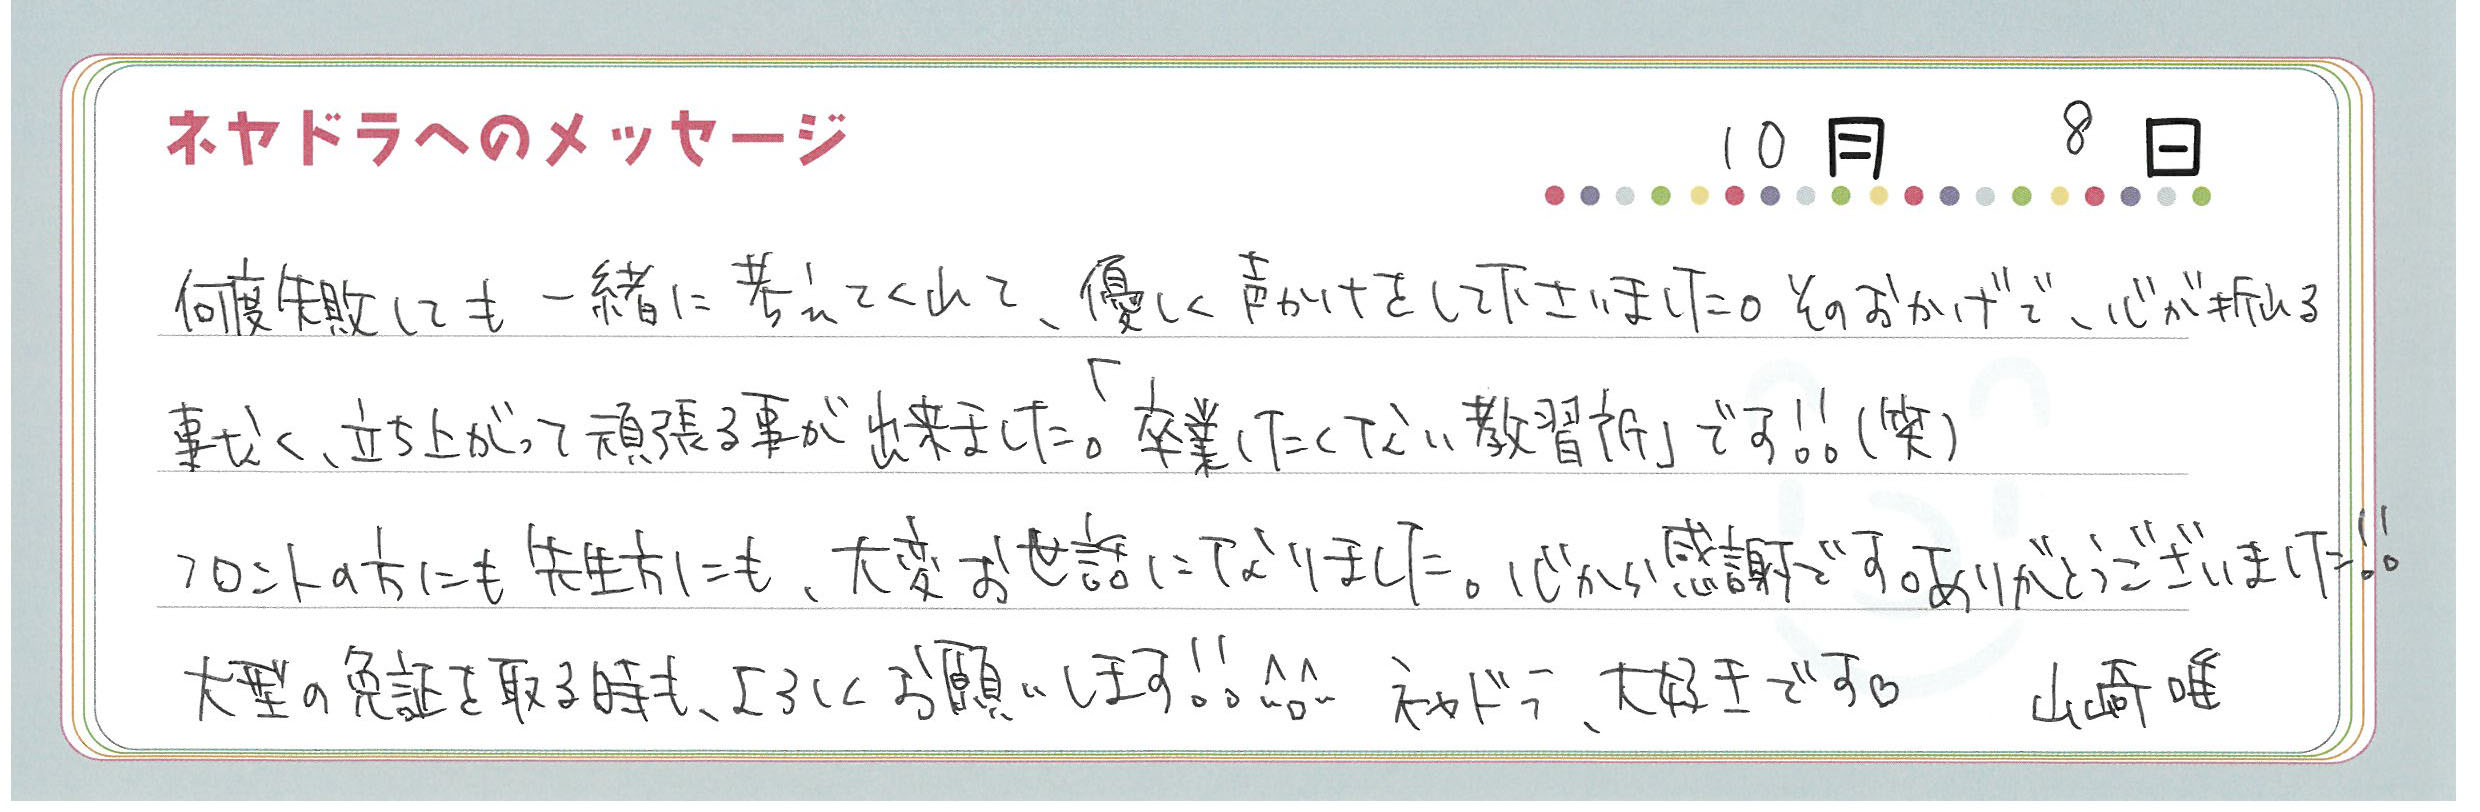 ネヤドラへのメッセージ
10月 8日
何度失敗しても一緒に考えてくれて、優しく声かけをして下さいました。そのおかげで、心が折れる
事なく、立ち上がって頑張る事が出来ました。「卒業したくない教習所」です!!(笑)
フロントの方にも先生方にも、大変お世話になりました。心から感謝です。ありがとうございました!!
大型の免証を取る時も、よろしくお願いします!! ネヤドラ、大好きです♡ 山崎唯